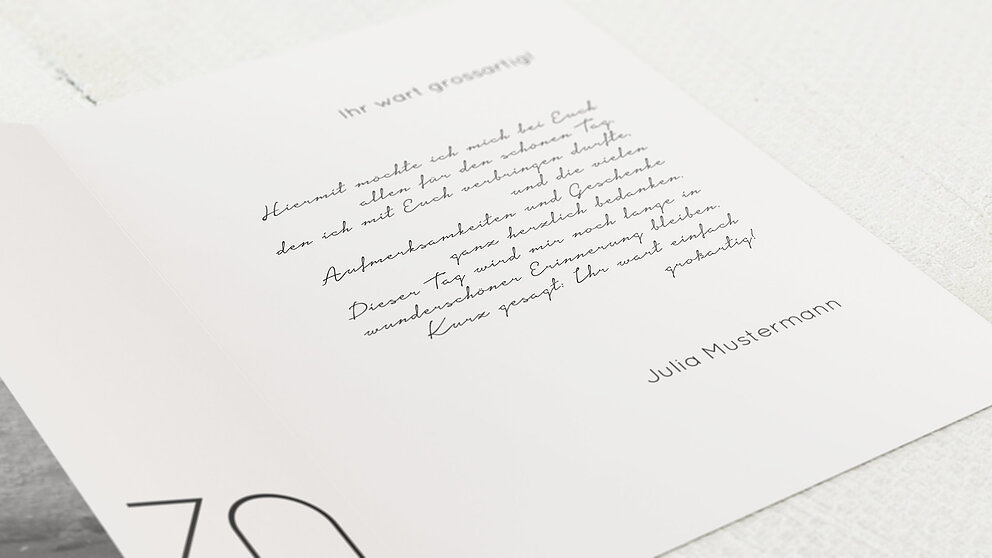 Ihr wart grossartig!
Hiermit möchte ich mich bei Euch
allen für den schönen Tag,
den ich mit Euch verbringen durfte,
und die vielen
Aufmerksamkeiten und Geschenke
ganz herzlich bedanken.
Dieser Tag wird mir noch lange in
wunderschöner Erinnerung bleiben.
Kurz gesagt: Ihr wart einfach
großartig!
Julia Mustermann